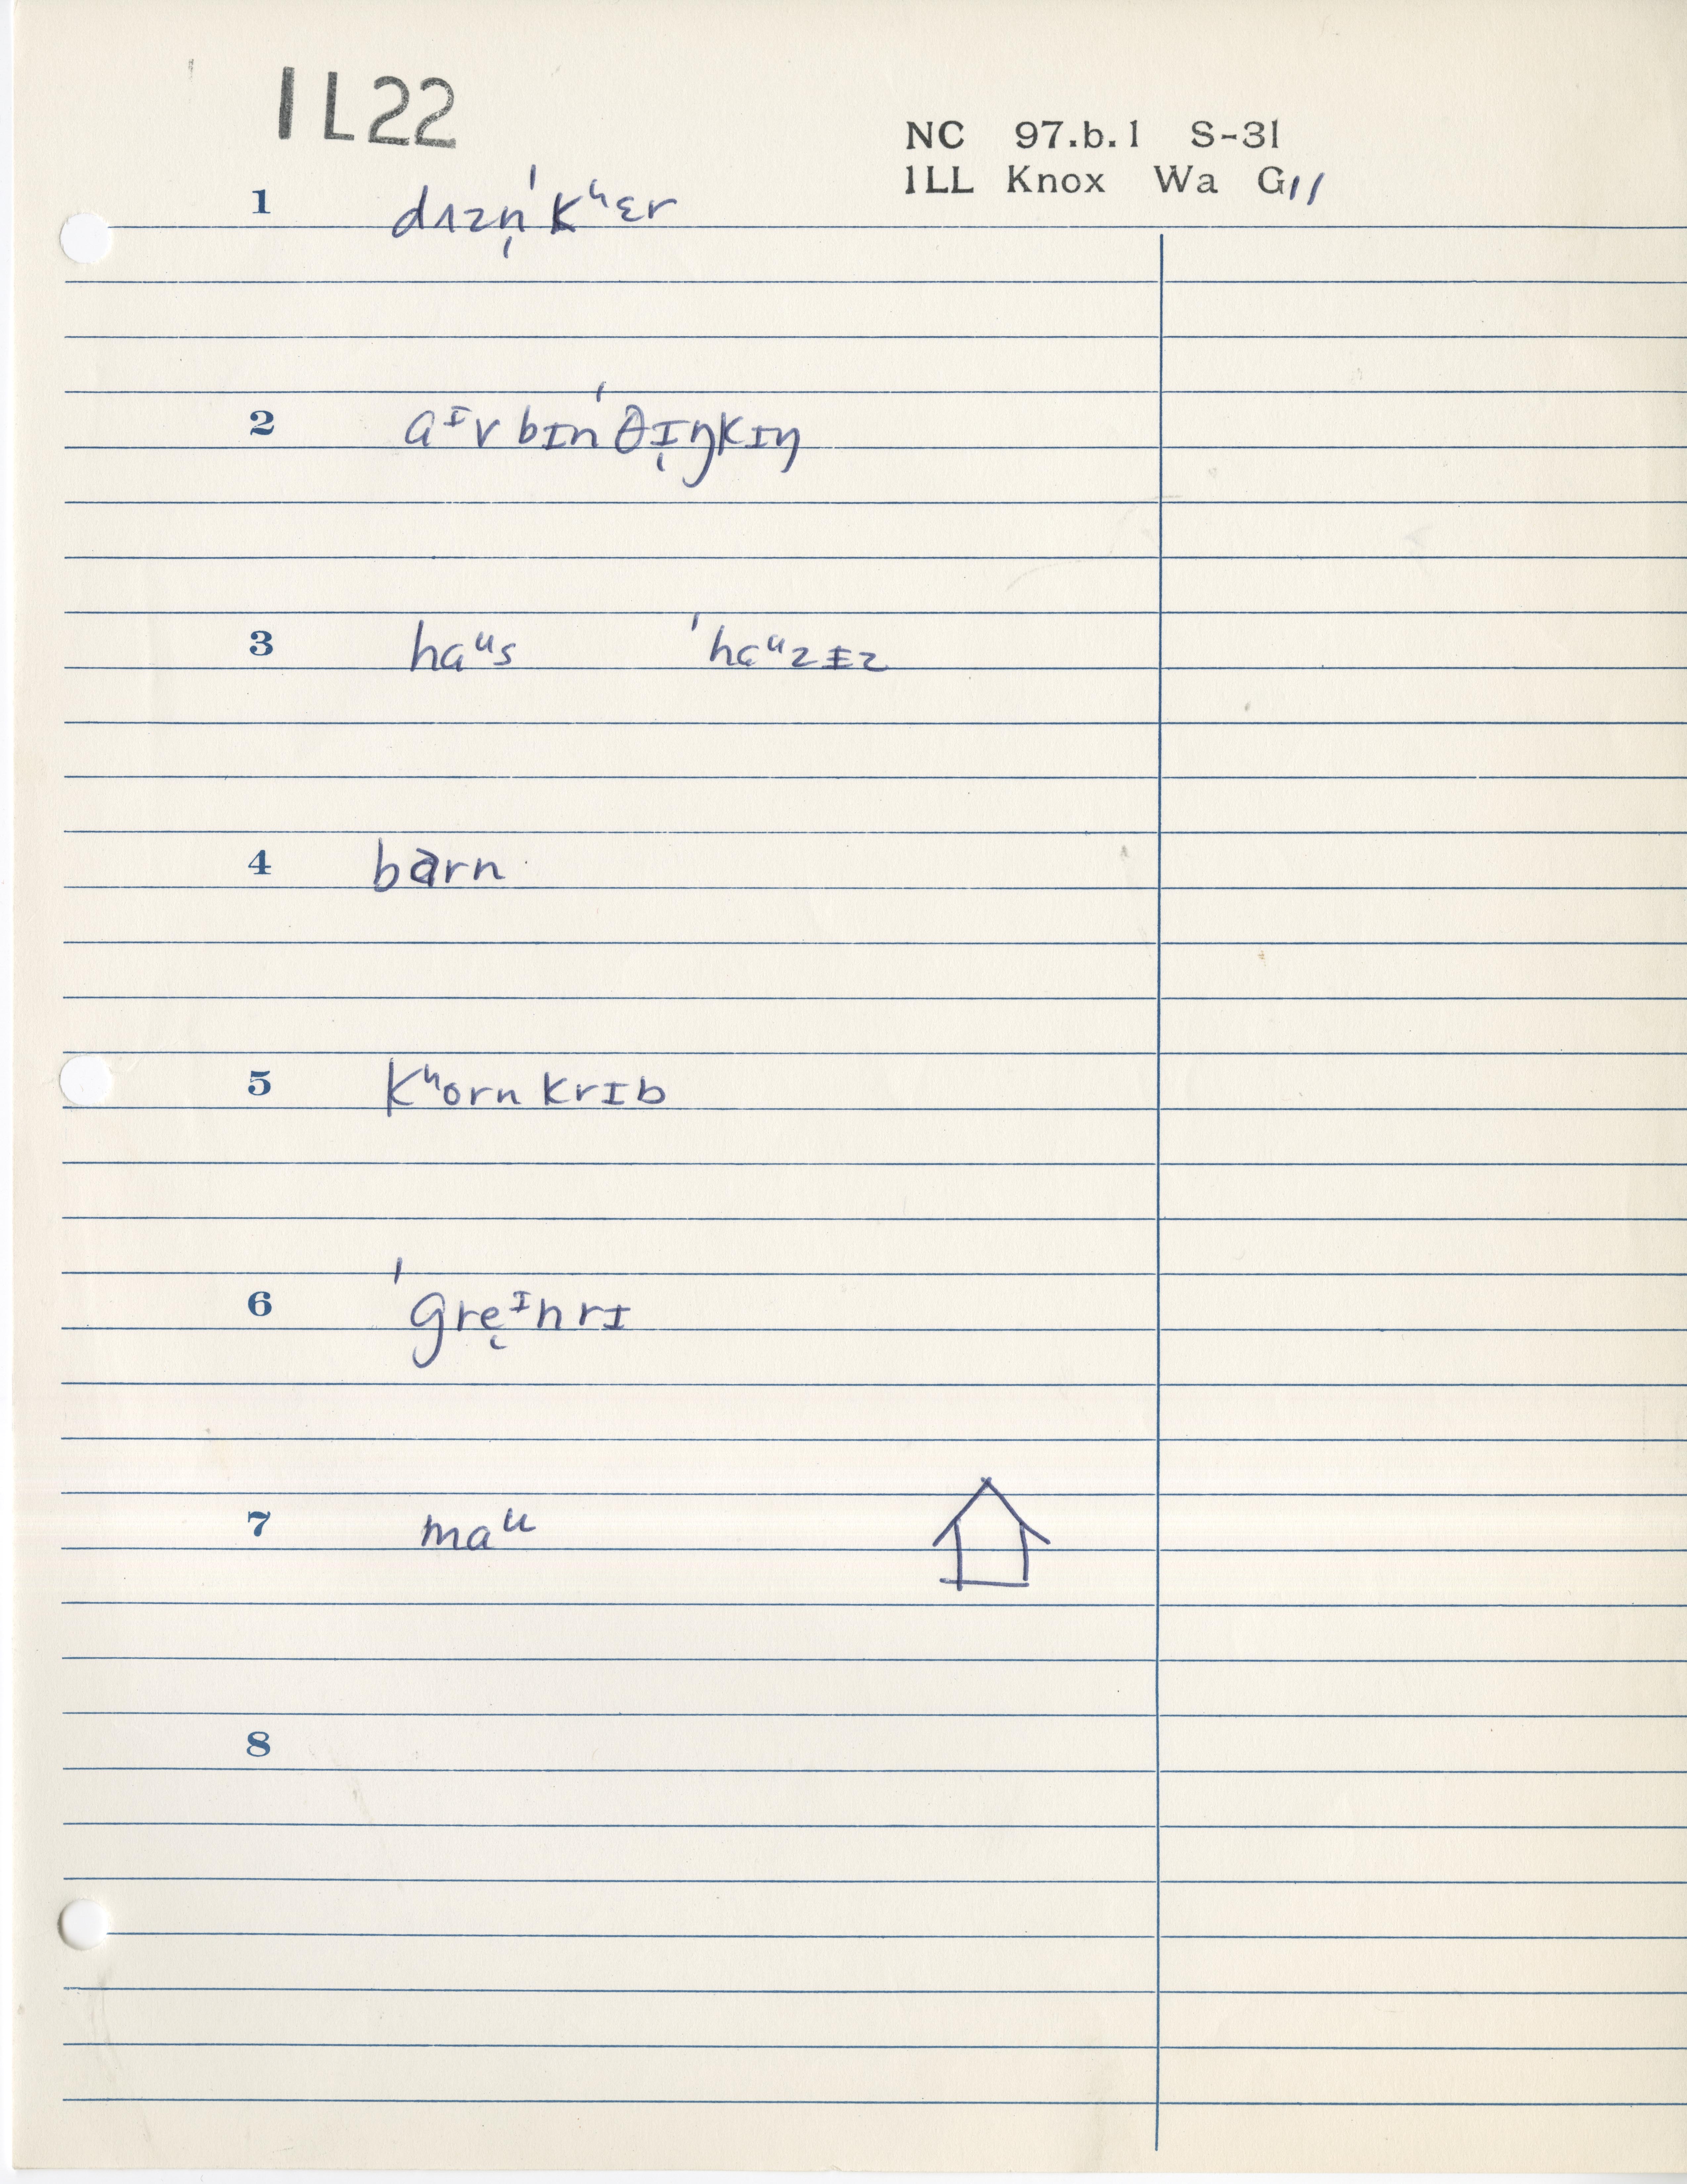 1L22
NC 97.b.1 S-31
1LL Knox Wa G11
1 dʌzn̩ˈkʰɛr
2 aᶦv bɪnˈθɪ̨ŋkɪŋ
3 haᵘs ˈhaᵘzɪ̵z
4 barn
5 kʰornkrɪb
6 ˈgrę ᶦnrɪ
7 maᵘ
8